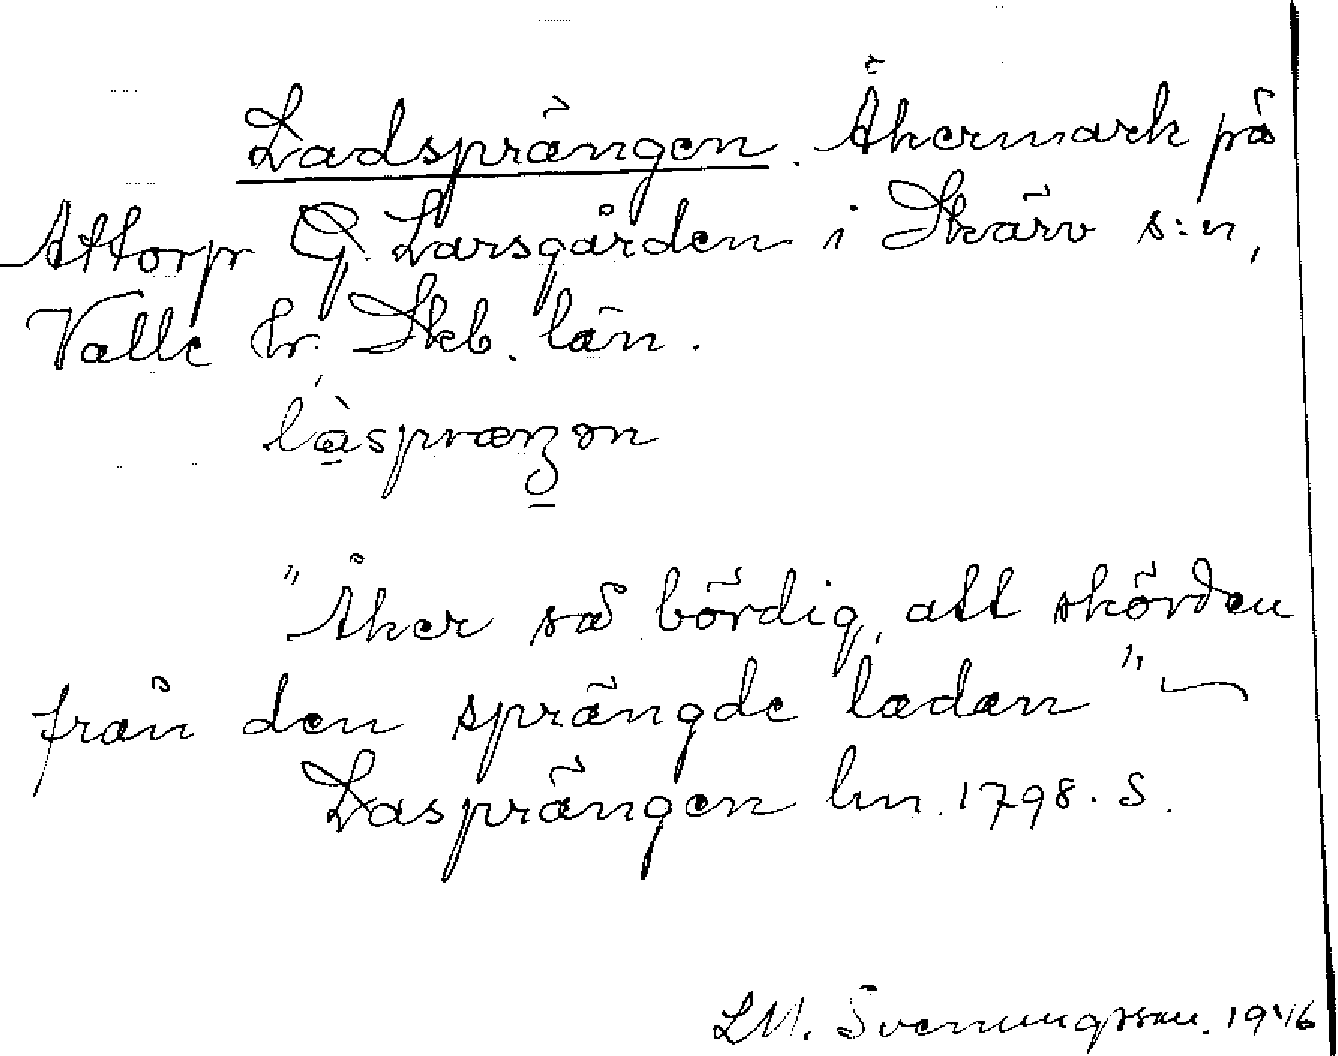 Ladsprängen. Åkermark på
Attorp G. Larsgården i Skärv s:n,
Valle hr. Skb. län.
làspræŋon
"Åker så bördig, att skörden
från den sprängde ladan" —
Lasprängen lm. 1798. S.
LM. Svenungsson. 1946